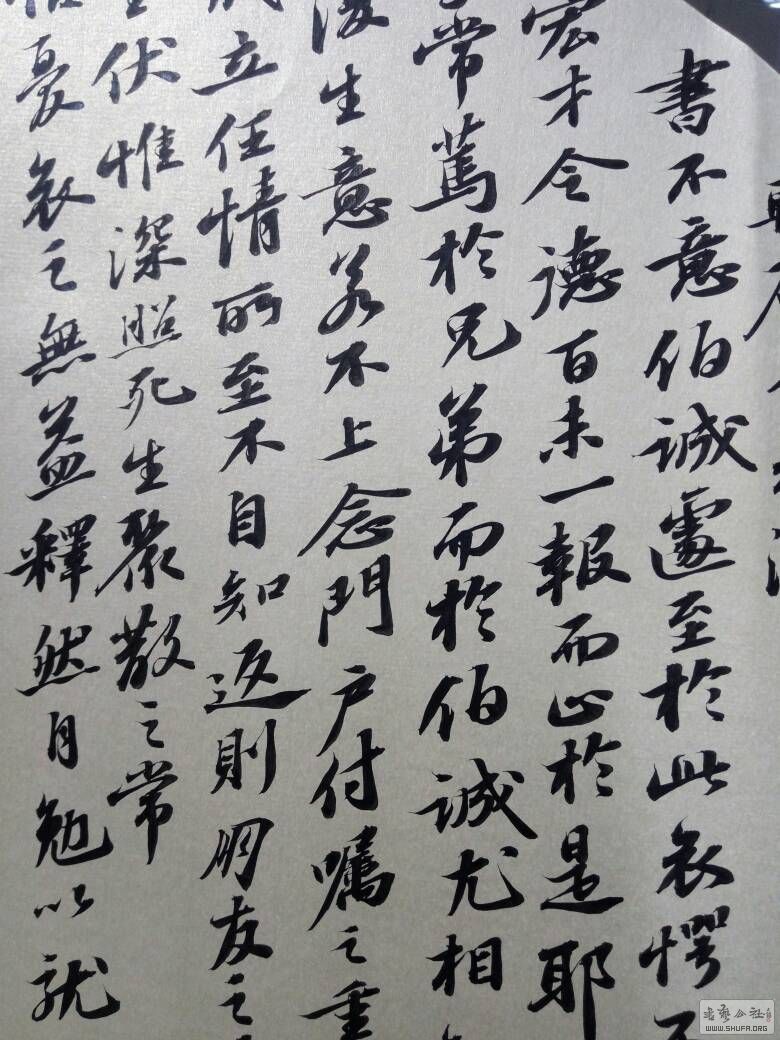 書不意伯誠遽至於此哀愕不
宏才令德百未一報而止於是耶
常篤於兄弟而於伯誠尤相
復生意若不上念門戶付囑之重
立任情所至不自知返則朋友之
伏惟深照死生聚散之常
憂哀之無益釋然自勉以就
书艺公社
WWW.SHUFA.ORG